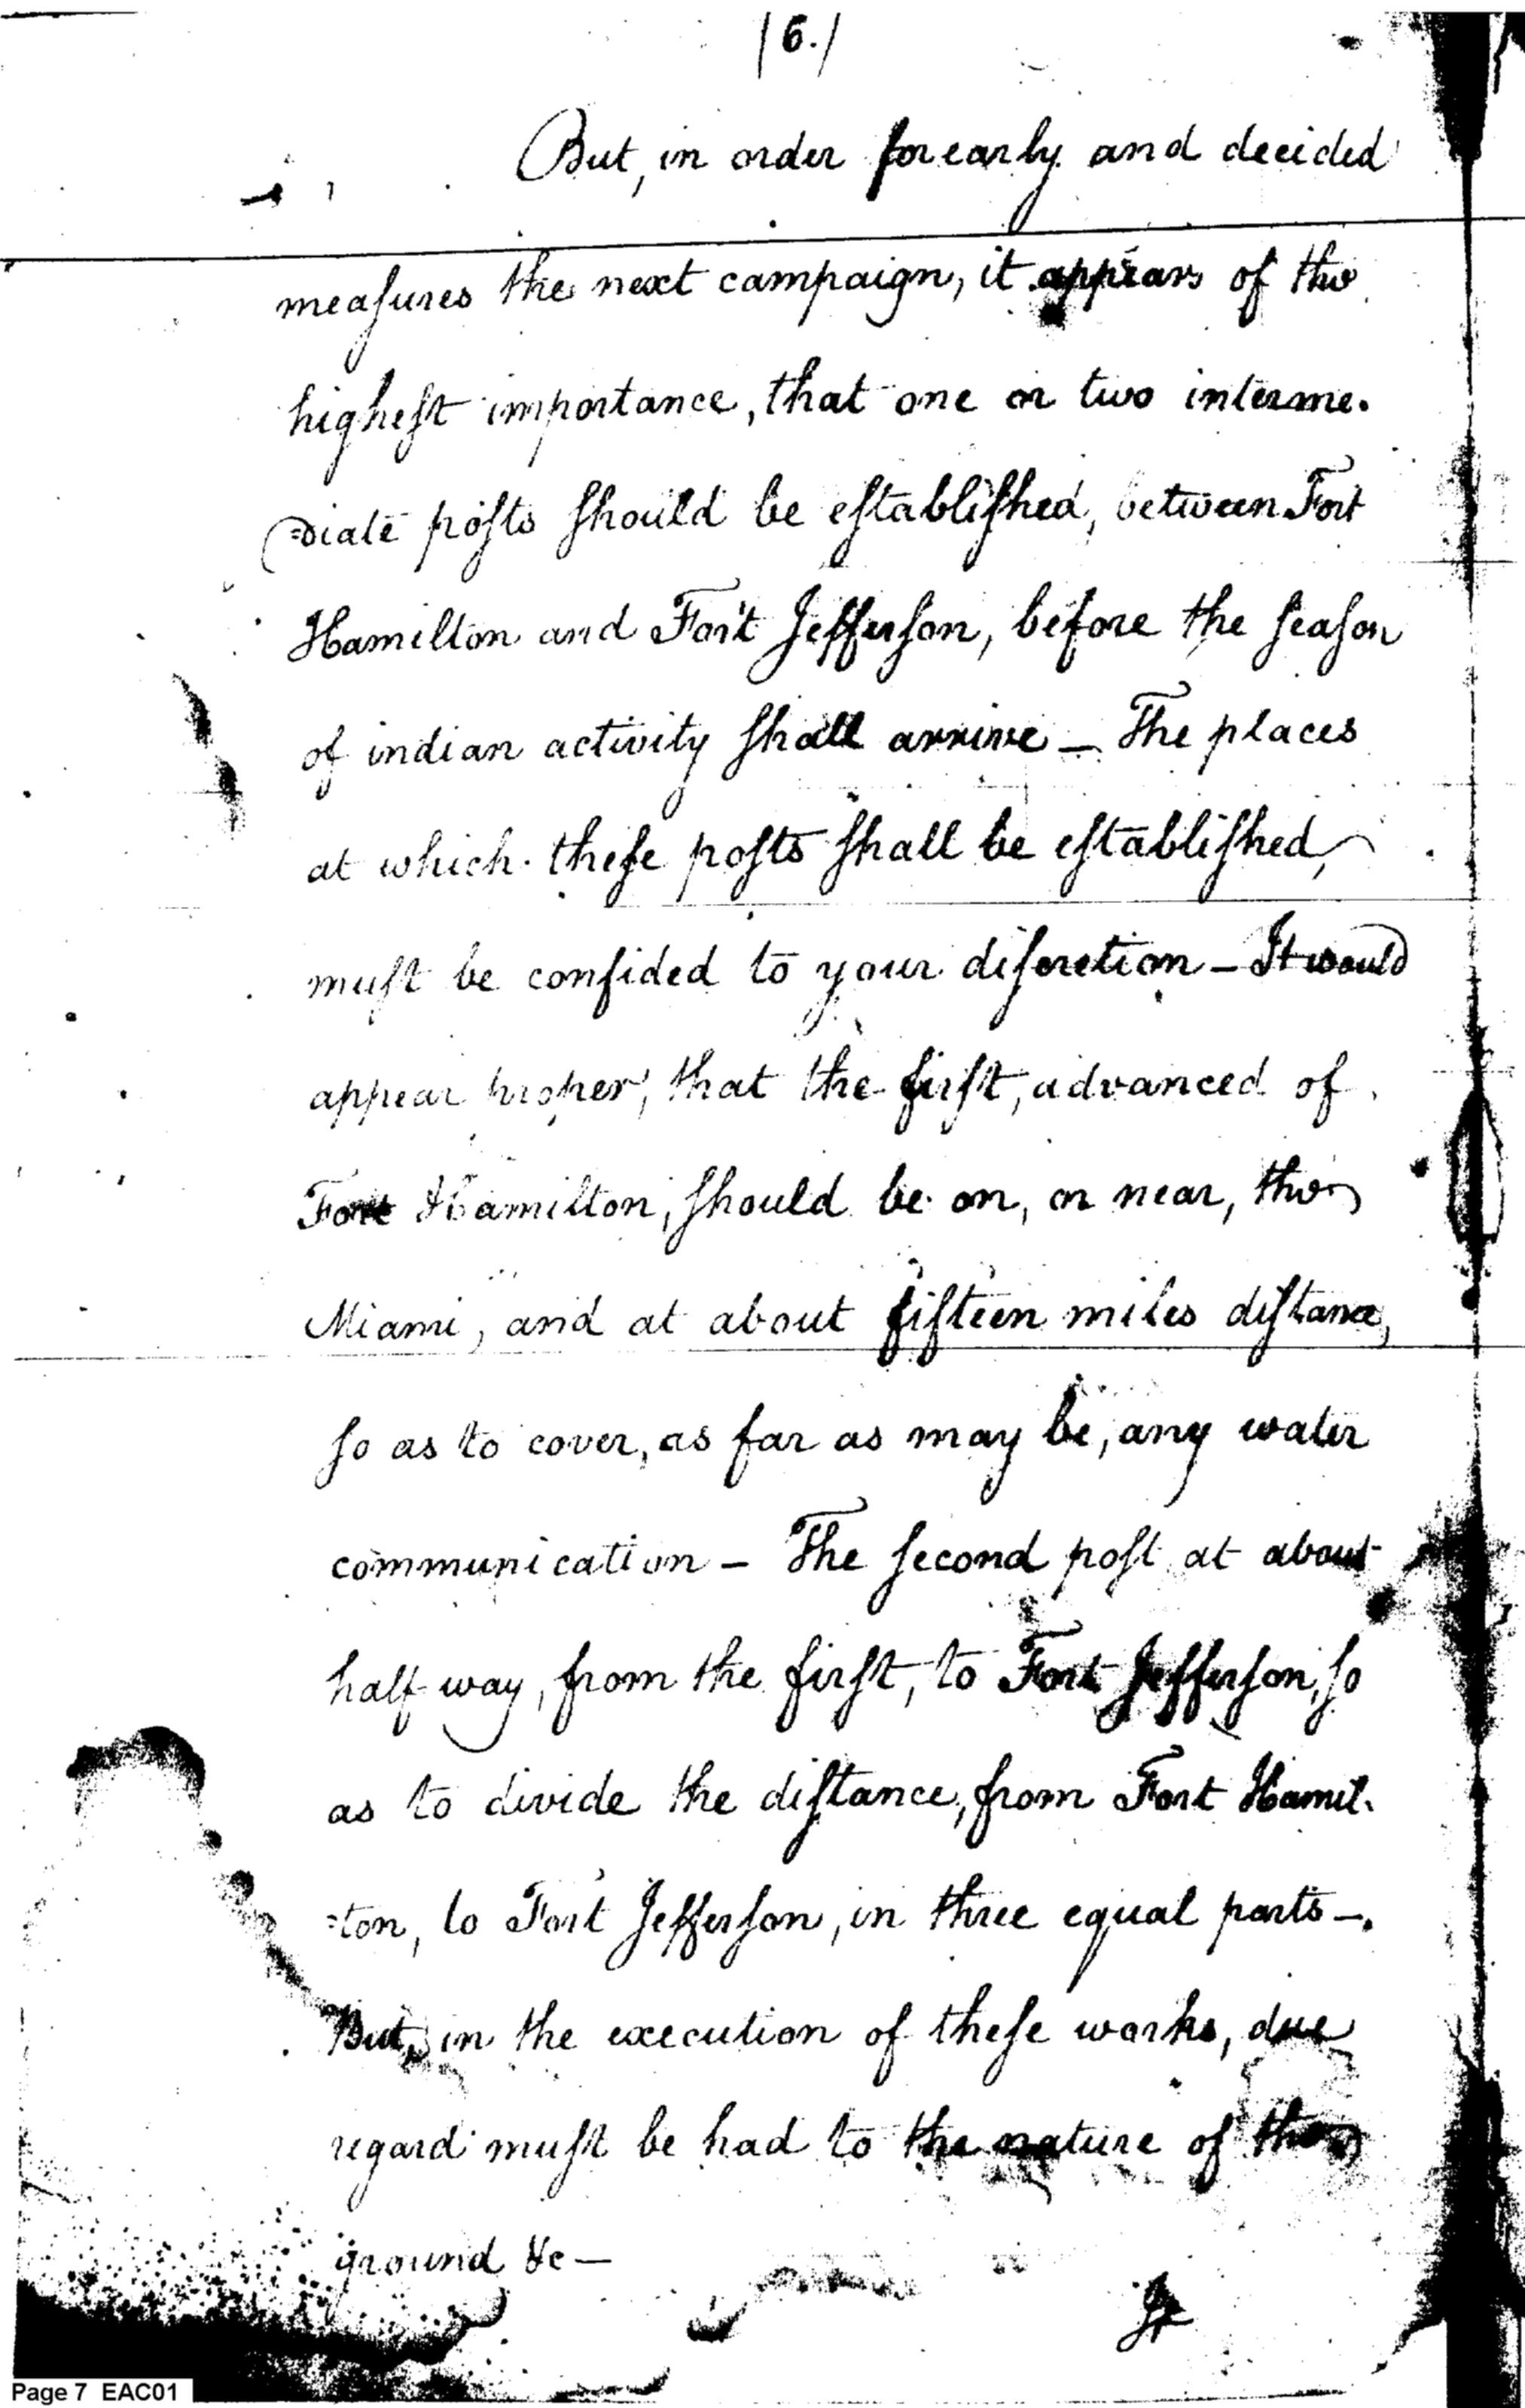 /6./
But, in order for early and decided
measures the next campaign, it appears of the
highest importance, that one or two interme-
=diate posts should be established, between Fort
Hamilton and Fort Jefferson, before the season
of indian activity shall arrive — The places
at which these posts shall be established,
must be confided to your discretion — It would
appear proper, that the first, advanced of
Fort Hamilton, should be on, or near, the
Miami, and at about fifteen miles distance,
so as to cover, as far as may be, any water
communication — The second post at about
half way, from the first, to Fort Jefferson, so
as to divide the distance, from Fort Hamil-
=ton, to Fort Jefferson, in three equal parts —.
But, in the execution of these works, due
regard must be had to the nature of the
ground &c —
It
Page 7 EAC01